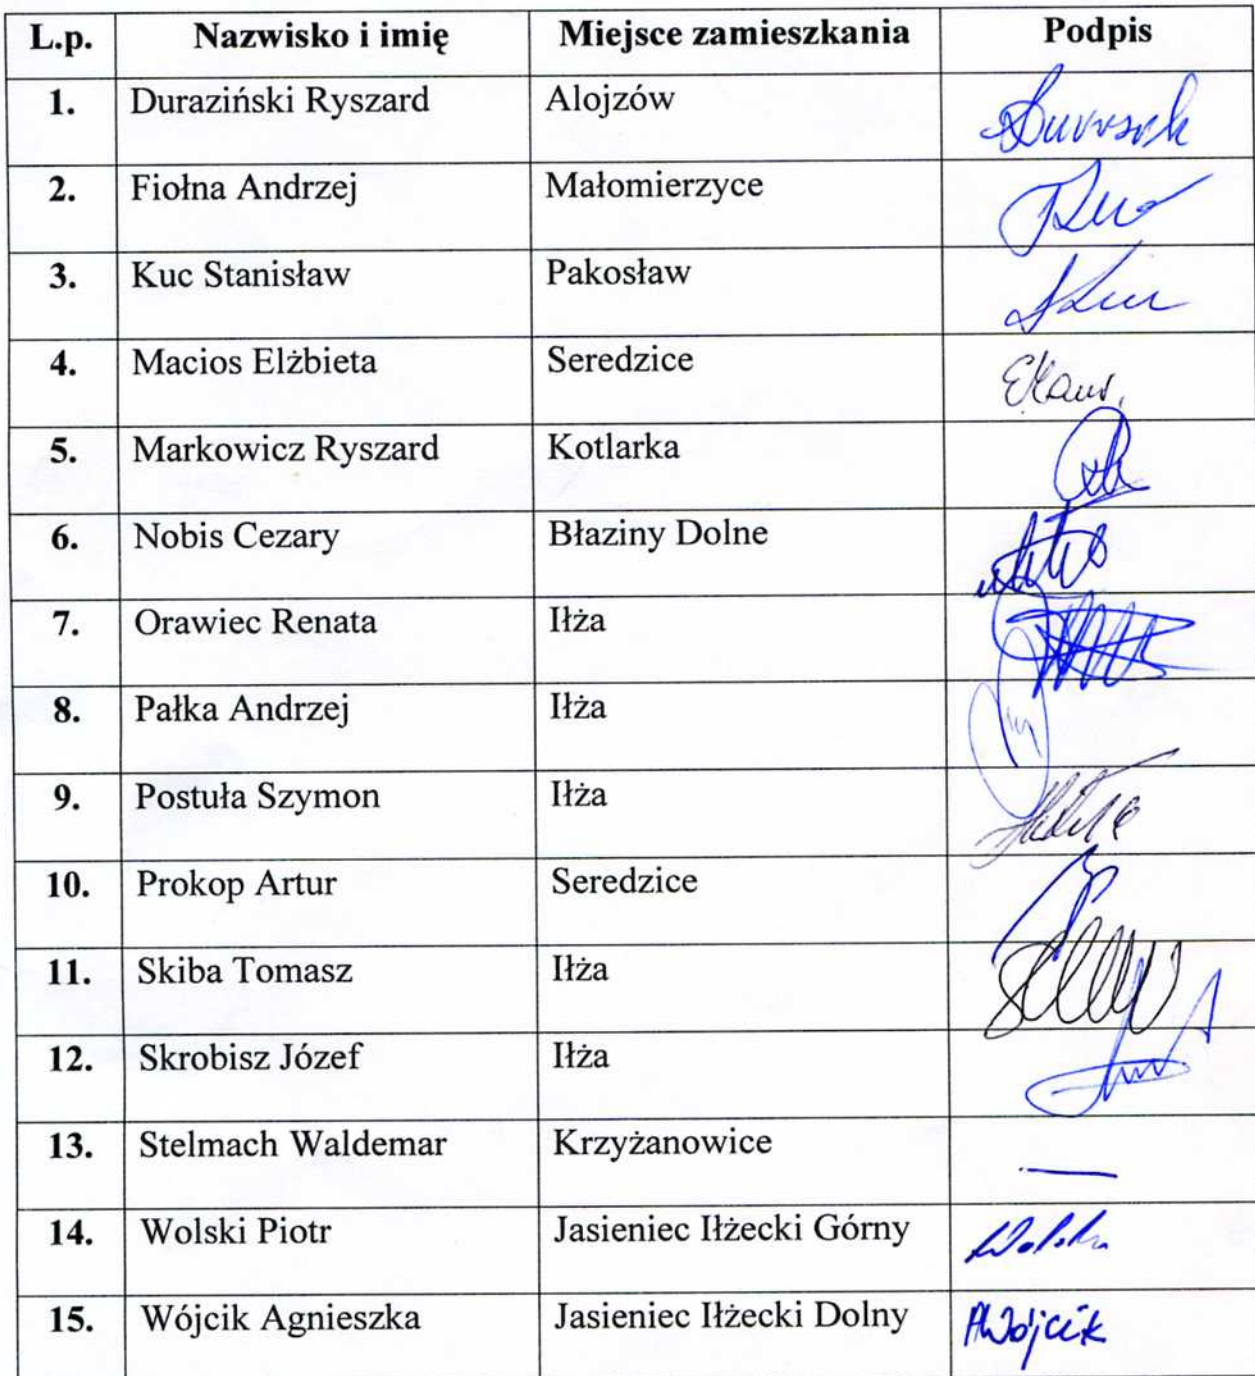 L.p. Nazwisko i imię Miejsce zamieszkania Podpis
1. Duraziński Ryszard Alojzów
2. Fiołna Andrzej Małomierzyce
3. Kuc Stanisław Pakosław
4. Macios Elżbieta Seredzice
5. Markowicz Ryszard Kotlarka
6. Nobis Cezary Błaziny Dolne
7. Orawiec Renata Iłża
8. Pałka Andrzej Iłża
9. Postuła Szymon Iłża
10. Prokop Artur Seredzice
11. Skiba Tomasz Iłża
12. Skrobisz Józef Iłża
13. Stelmach Waldemar Krzyżanowice —
14. Wolski Piotr Jasieniec Iłżecki Górny
15. Wójcik Agnieszka Jasieniec Iłżecki Dolny AWójcik